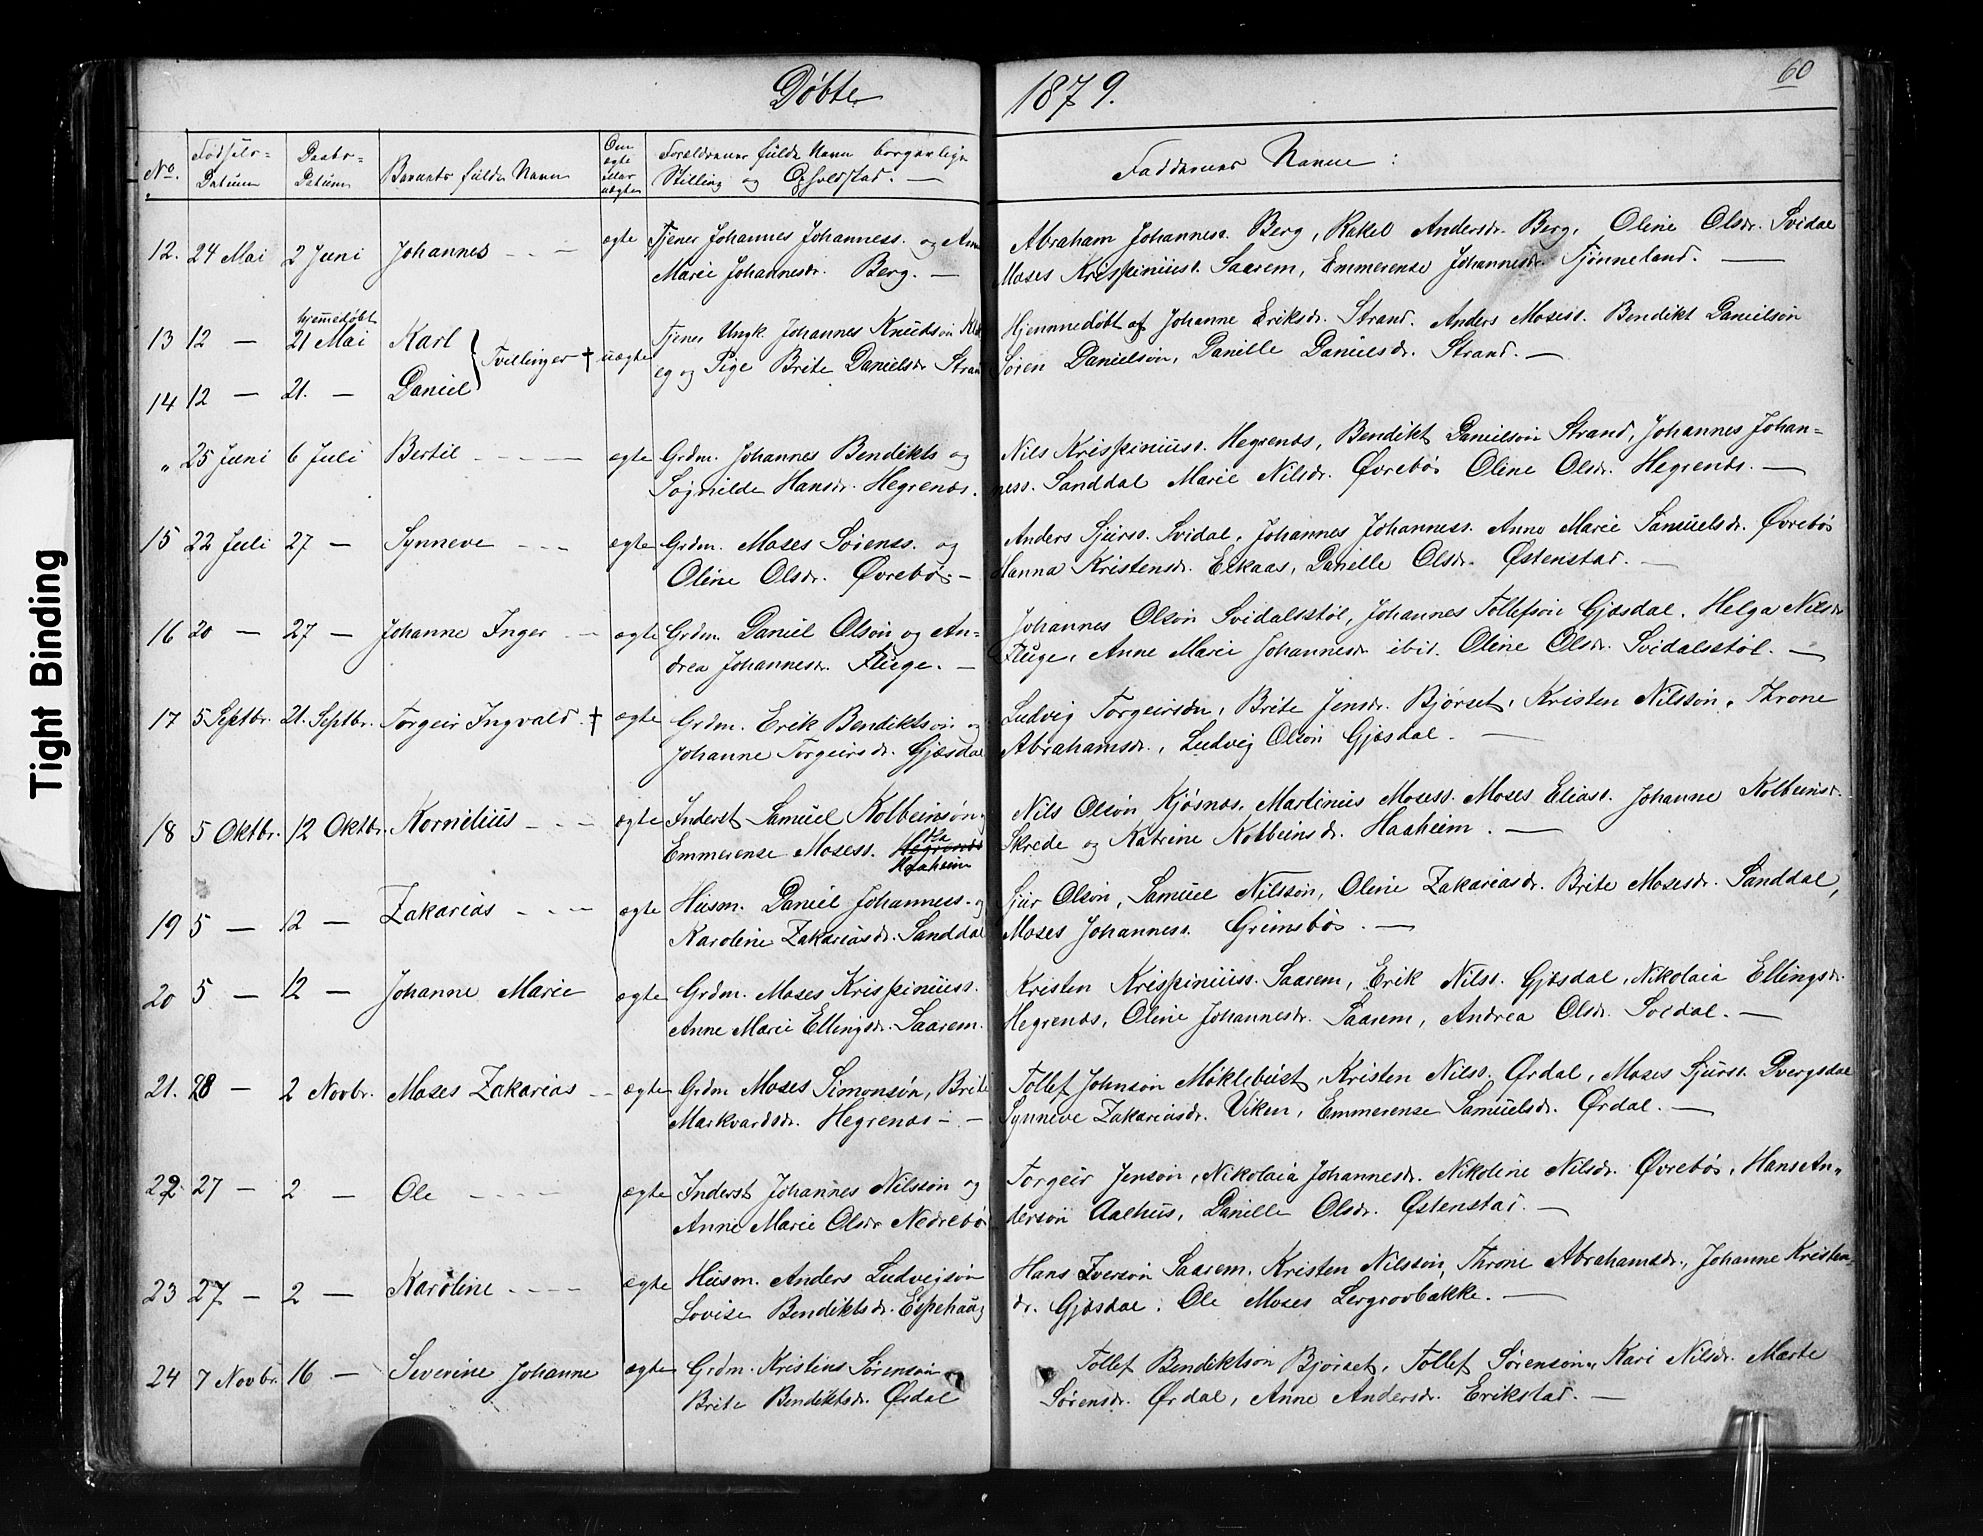 Døbte 1879. 60
No. Fødsels- Datum Daabs- Datum Barnets fulde Navn Om ægte eller uægte Forældrenes fulde Navn borgerlige Stilling og Opholdstad. — Faddernes Navne :
12. 24 Mai 2 Juni Johannes - - - ægte Tjener Johannes Johanness. og Anne
Marie Johannesdr. Berg. —
Abraham Johanness. Berg, Rakel Andersdr. Berg, Oline Olsdr. Svidal
Moses Krispiniuss. Saarem, Emmerense Johannesdr. Tjønneland. —
hjemmedøbt
13 12 — 21 Mai Karl
Tvillinger † uægte
14 12 — 21. — Daniel
Tjener Ungk. Johannes Knudsøn
og Pige Brite Danielsdr. Strand
Hjemmedøbt af Johanne Eriksdr. Strand. Anders Mosess. Bendikt Danielsøn
Søren Danielsøn, Danille Danielsdr. Strand. —
" 25 Juni 6 Juli Bertil - - - - - ægte Grdm. Johannes Bendikts og
Søgnilde Hansdr. Hegrenæs.
Nils Krispiniuss. Hegrenæs, Bendikt Danielsøn Strand, Johannes Johan-
ness. Sanddal Marie Nilsdr. Øvrebø Oline Olsdr. Hegrenæs. —
15 22 Juli 27 — Synneve - - - ægte Grdm. Moses Sørenss. og
Oline Olsdr. Øvrebø. —
Anders Sjurss. Svidal, Johannes Johanness. Anne Marie Samuelsdr. Øvrebø
Hanna Kristensdr. Eikaas, Danille Olsdr. Østenstad. —
16 20 — 27 — Johanne Inger - - ægte Grdm. Daniel Olsøn og An-
drea Johannesdr. Fluge. —
Johannes Olsøn Svidalsstøl, Johannes Tollefsøn Gjesdal. Helga Nilsdr
Fluge, Anne Marie Johannesdr ibid. Oline Olsdr. Svidalsstøl. —
17 5 Septbr. 21. Septbr. Torgeir Ingvald. † ægte Grdm. Erik Bendiktsøn og
Johanne Torgeirsdr. Gjesdal
Ludvig Torgeirsøn, Brite Jensdr. Bjørset, Kristen Nilssøn, Throne
Abrahamsdr., Ludvig Olsøn Gjesdal. —
18 5 Oktbr. 12 Oktbr. Kornelius - - - ægte Inderst Samuel Kolbeinsøn og
Emmerense Mosess. Hegrenæs
Haaheim
Nils Olsøn Kjøsnæs, Martinus Mosess. Moses Eliass. Johanne Kolbeinsdr.
Skrede og Katrine Kolbeinsdr. Haaheim. —
19 5 — 12 — Zakarias - - - ægte Husm. Daniel Johanness. og
Karoline Zakariasdr. Sanddal
Sjur Olsøn, Samuel Nilssøn, Oline Zakariasdr. Brite Mosesdr. Sanddal,
Moses Johanness. Grimsbø. —
20 5 — 12 — Johanne Marie ægte Grdm. Moses Krispiniuss.
Anne Marie Ellingsdr. Saarem.
Kristen Krispiniuss. Saarem, Erik Nilss. Gjesdal, Nikolaia Ellingsdr.
Hegrenæs, Oline Johannesdr. Saarem, Andrea Olsdr. Svidal. —
21. 28 — 2 Novbr. Moses Zakarias - - ægte Grdm Moses Simonsøn, Brite
Markvardsdr. Hegrenæs - —
Tollef Johnsøn Møklebust, Kristen Nilss. Ørdal, Moses Sjurss. Dvergsdal
Synneve Zakariasdr. Viken, Emmerense Samuelsdr. Ørdal. —
22 27 — 2 — Ole - - - - ægte Inderst Johannes Nilssøn og
Anne Marie Olsdr Nedrebø
Torgeir Jensøn, Nikolaia Johannesdr. Nikoline Nilsdr. Øvrebø, Hans An-
dersøn Aalhus, Danille Olsdr. Østenstad. —
23 27 — 2 — Karoline - - - - ægte Husm. Anders Ludvigsøn
Lovise Bendiktsdr. Espehaug
Hans Iversøn Saarem. Kristen Nilssøn, Throne Abrahamsdr., Johanne Kristen-
dr. Gjesdal, Ole Moses Lergrovbakke. —
24 7 Novbr. 16 — Severine Johanne ægte Grdm. Kristens Sørensøn og
Brite Bendiktsdr. Ørdal
Tollef Bendiktsøn Bjørset, Tollef Sørensøn, Kari Nilsdr. Marte
Sørensdr. Ørdal, Anne Andersdr. Erikstad. —
Tight Binding